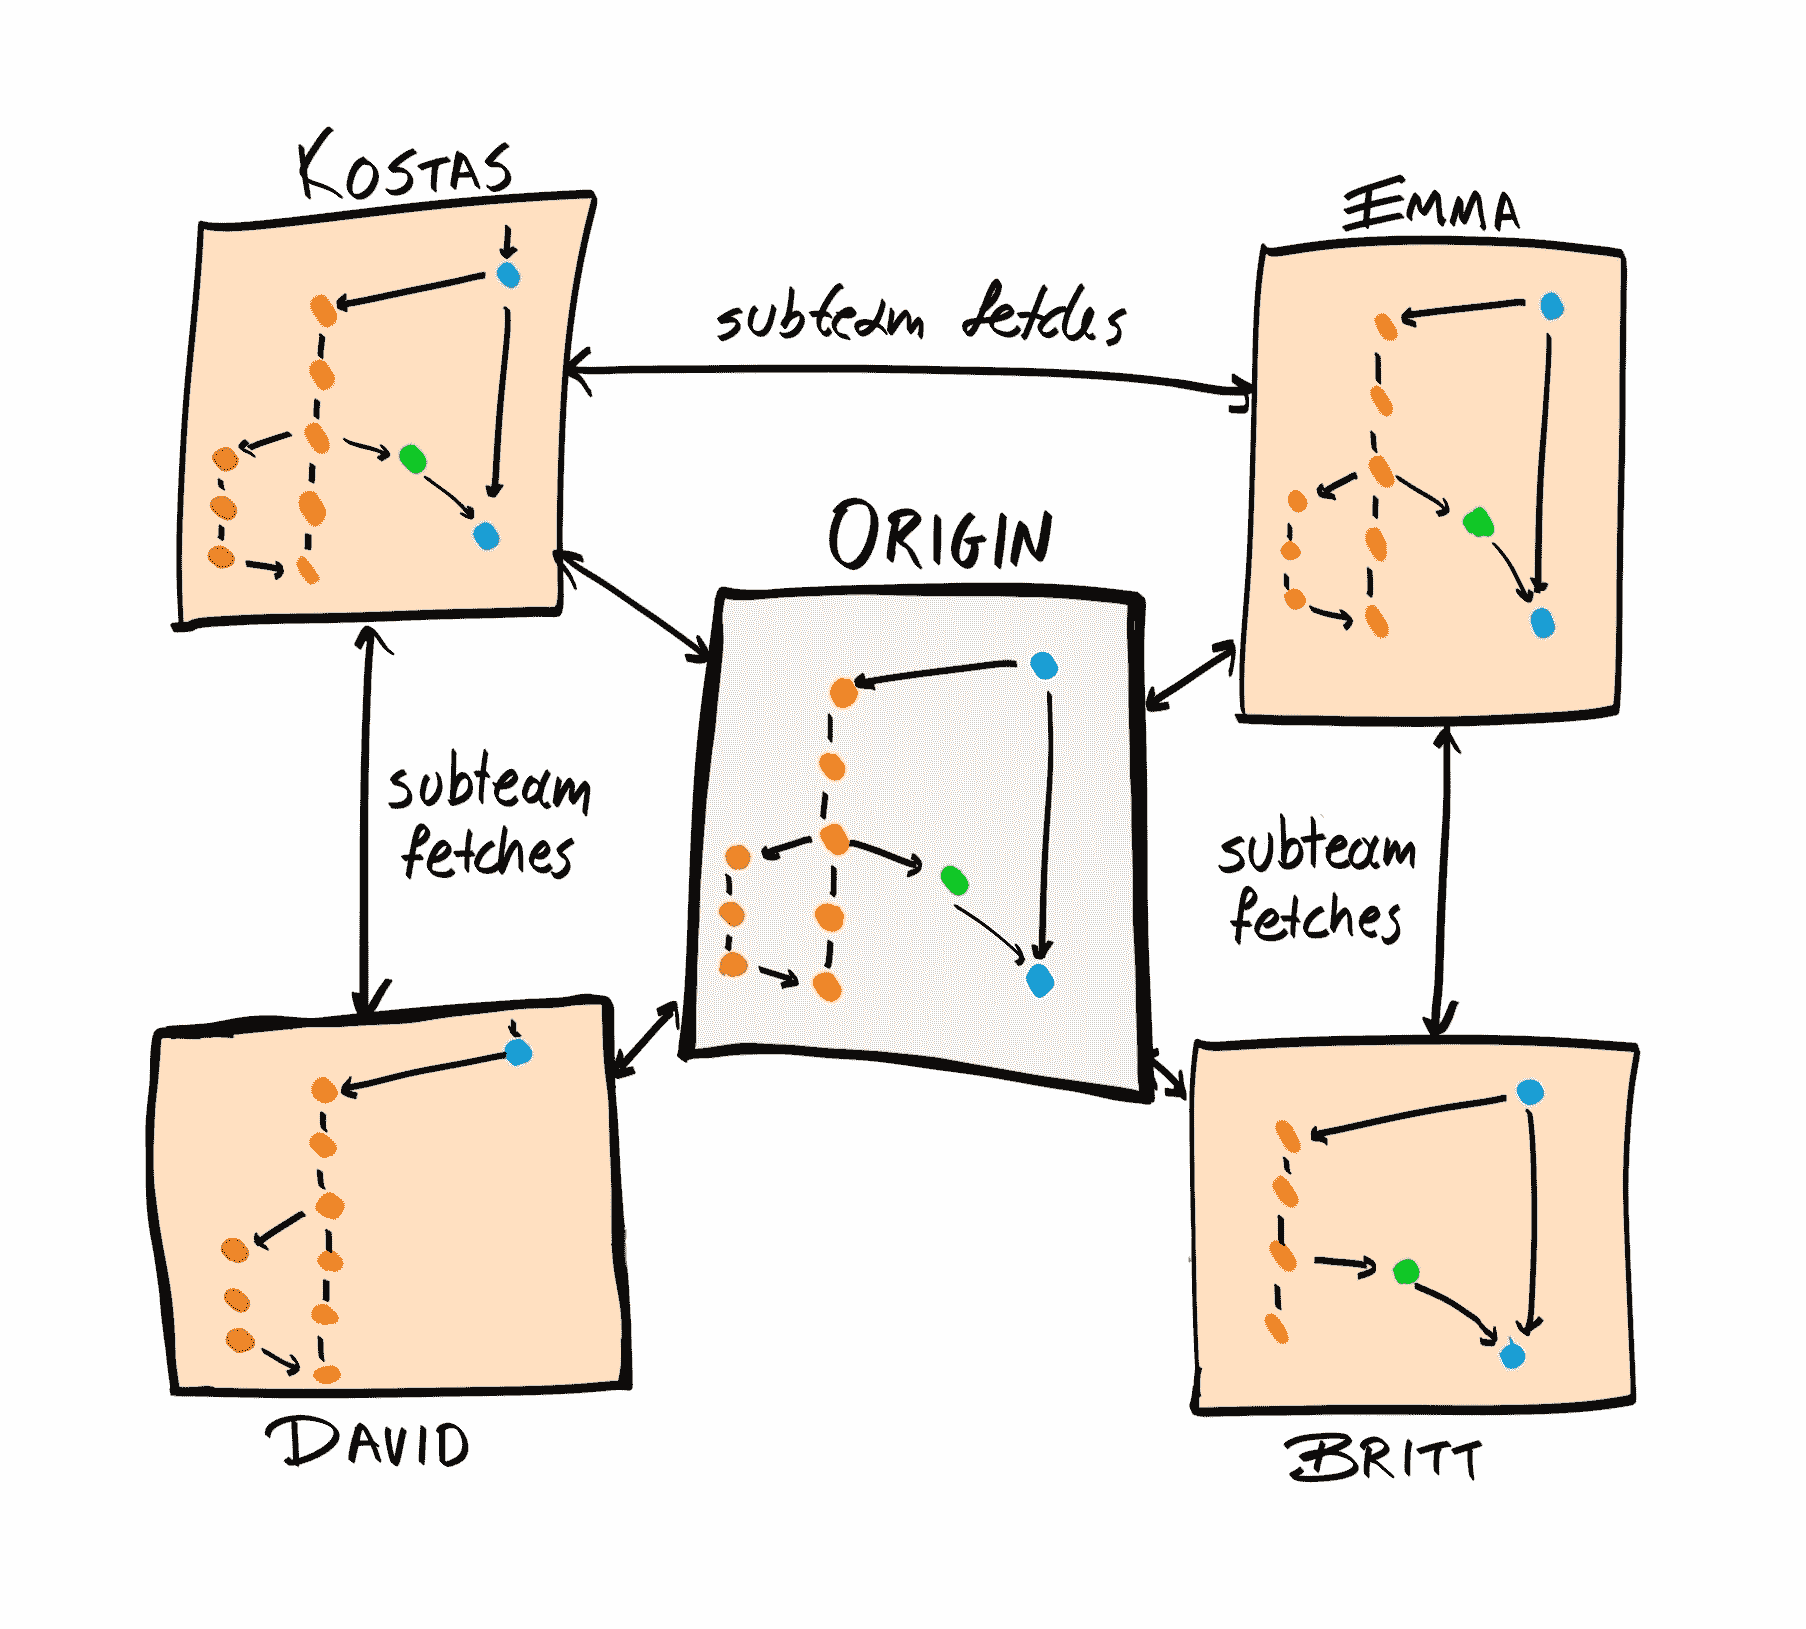 KOSTAS
EMMA
subteam fetches
ORIGIN
subteam
fetches
subteam
fetches
DAVID
BRITT